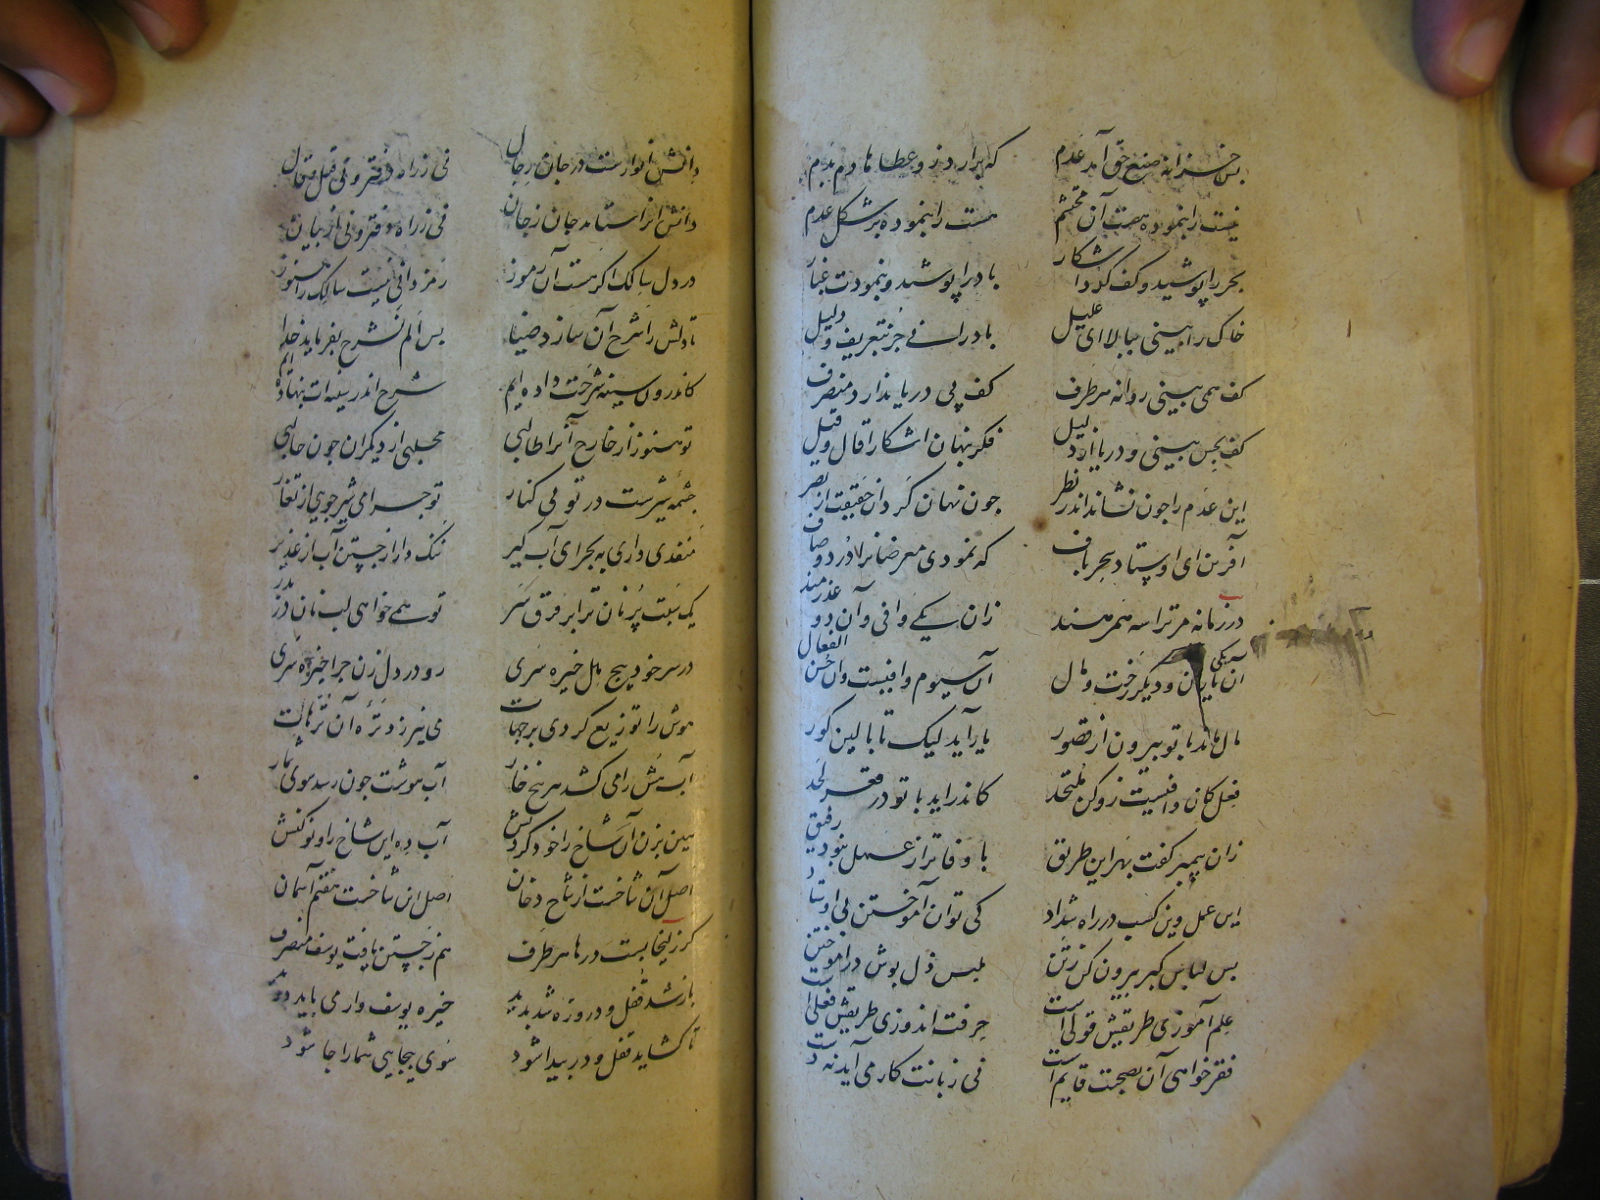 پس خزانه صنع حق آمد عدم که برآرد زو عطاها دم بدم
نیست را بنمود هست آن محتشم هست را بنمود بر شکل عدم
بحر را پوشید و کف کرد آشکار باد را پوشید و بنمودت غبار
خاک را بینی ببالا ای علیل باد را نی جز بتعریف و دلیل
کف همی بینی روانه هر طرف کف بی دریا ندارد منصرف
کف بحس بینی و دریا از دلیل فکر پنهان آشکارا قال و قیل
این عدم را چون نشاند اندر نظر چون نهان کرد آن حقیقت از بصر
آفرین ای اوستاد سحر باف که نمودی معرضانرا درد و صاف
در زمانه مر ترا سه همرهند زان یکی وافی و آن دو غدرمند
آن یکی یاران و دیگر رخت و مال آن سیوم وافیست وان حسن الفعال
مال ناید با تو بیرون از قصور یار آید لیک تا بالین کور
فعل کان وافیست زو کن ملتحد کاندر اید با تو در قعر لحد
زان پیمبر کفت بهر این طریق با وفاتر از عمل نبود رفیق
این عمل وین کسب در راه سداد کی توان آموختن بی اوستاد
پس لباس کبر بیرون کن ز تن ملبس ذل پوش در آموختن
علم آموزی طریقش قولی است حرفت اندوزی طریقش فعلی است
فقر خواهی آن بصحبت قایم است نی زبانت کار می آید نه دست
دانش انوارست در جان رجال نی ز راه دفتر و نی قیل و قال
دانش آنرا ستاند جان ز جان نی ز راه دفتر و نی از بیان
در دل سالک اکر هست آن رموز رمز دانی نیست سالک را هنوز
تا دلش را شرح آن سازد ضیا پس الم نشرح بفرماید خدا
کاندرون سینه شرحت داده ایم شرح اندر سینه ات بنهاده ایم
تو هنوز از خارج آنرا طالبی محلبی از دیکران چون حالبی
چشمه شیرست در تو بی کنار تو چرا می شیر جویی از تغار
منفذی داری به بحر ای آب کیر ننک دار از جستن آب از غدیر
یک سبت پر نان ترا بر فرق سر تو همی خواهی لب نان در بدر
در سر خود پیچ هل خیره سری رو در دل زن چرا خیره سری
هوش را توزیع کردی بر جهات می نیرزد تره آن ترهات
آب هش را می کشد هر بیخ خار آب هوشت چون رسد سوی ثمار
هین بزن آن شاخ را خو کردنش آب ده این شاخ را نو کنش
اصل آن شاخست از شاخ دخان اصل این شاخست هفتم آسمان
کر زلیخا بست درها هر طرف هم ز جستن یافت یوسف منصرف
باز شد قفل و در و ره شد پدید خیره یوسف وار می باید دوید
تا کشاید قفل و در پیدا شود سوی بیجایی شما را جا شود